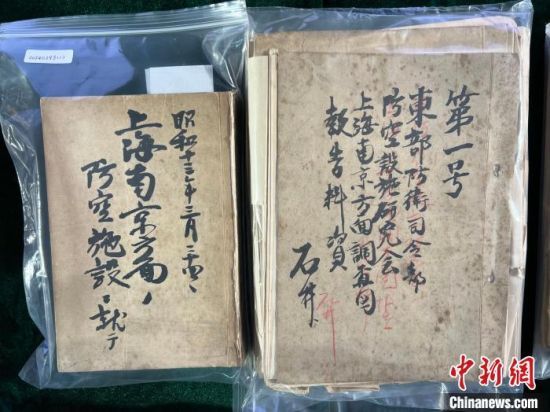 昭和十三年三月二四、
上海南京方面ノ
防空施設ニ就テ
第一号
東部防衛司令部
防空設施研究会
上海南京方面調査団
報告料資
石井
中新网
Chinanews.com